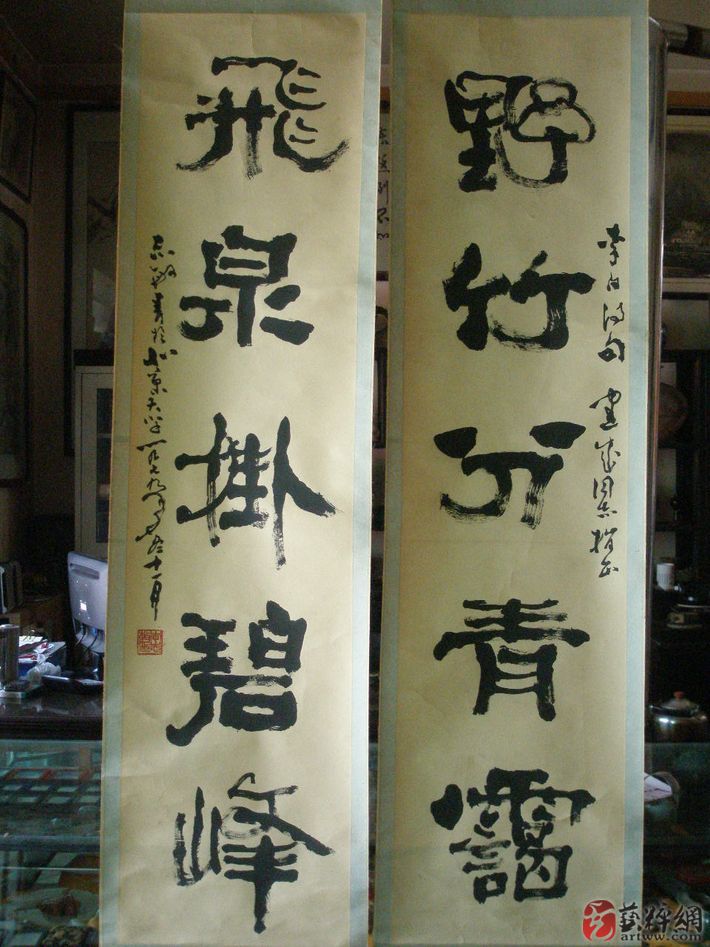 野竹分青靄
李白詩句 建成同志指正
飛泉掛碧峰
志敏書於北京大學一九七九年
十一月
藝粹網
artww.com